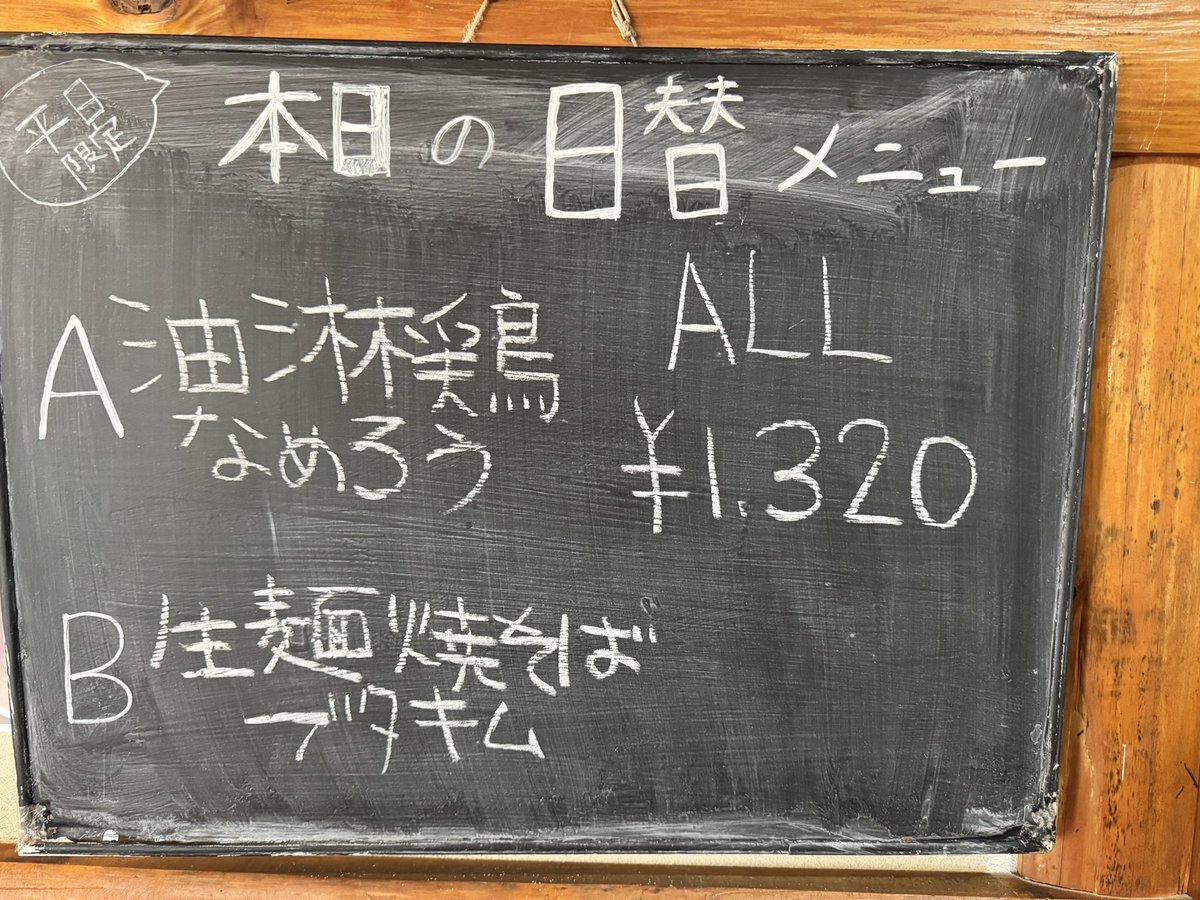 平日
限定
本日の日替メニュー
A 油淋鶏
なめろう
ALL
¥1.320
B 生麺焼そば
ブタキム